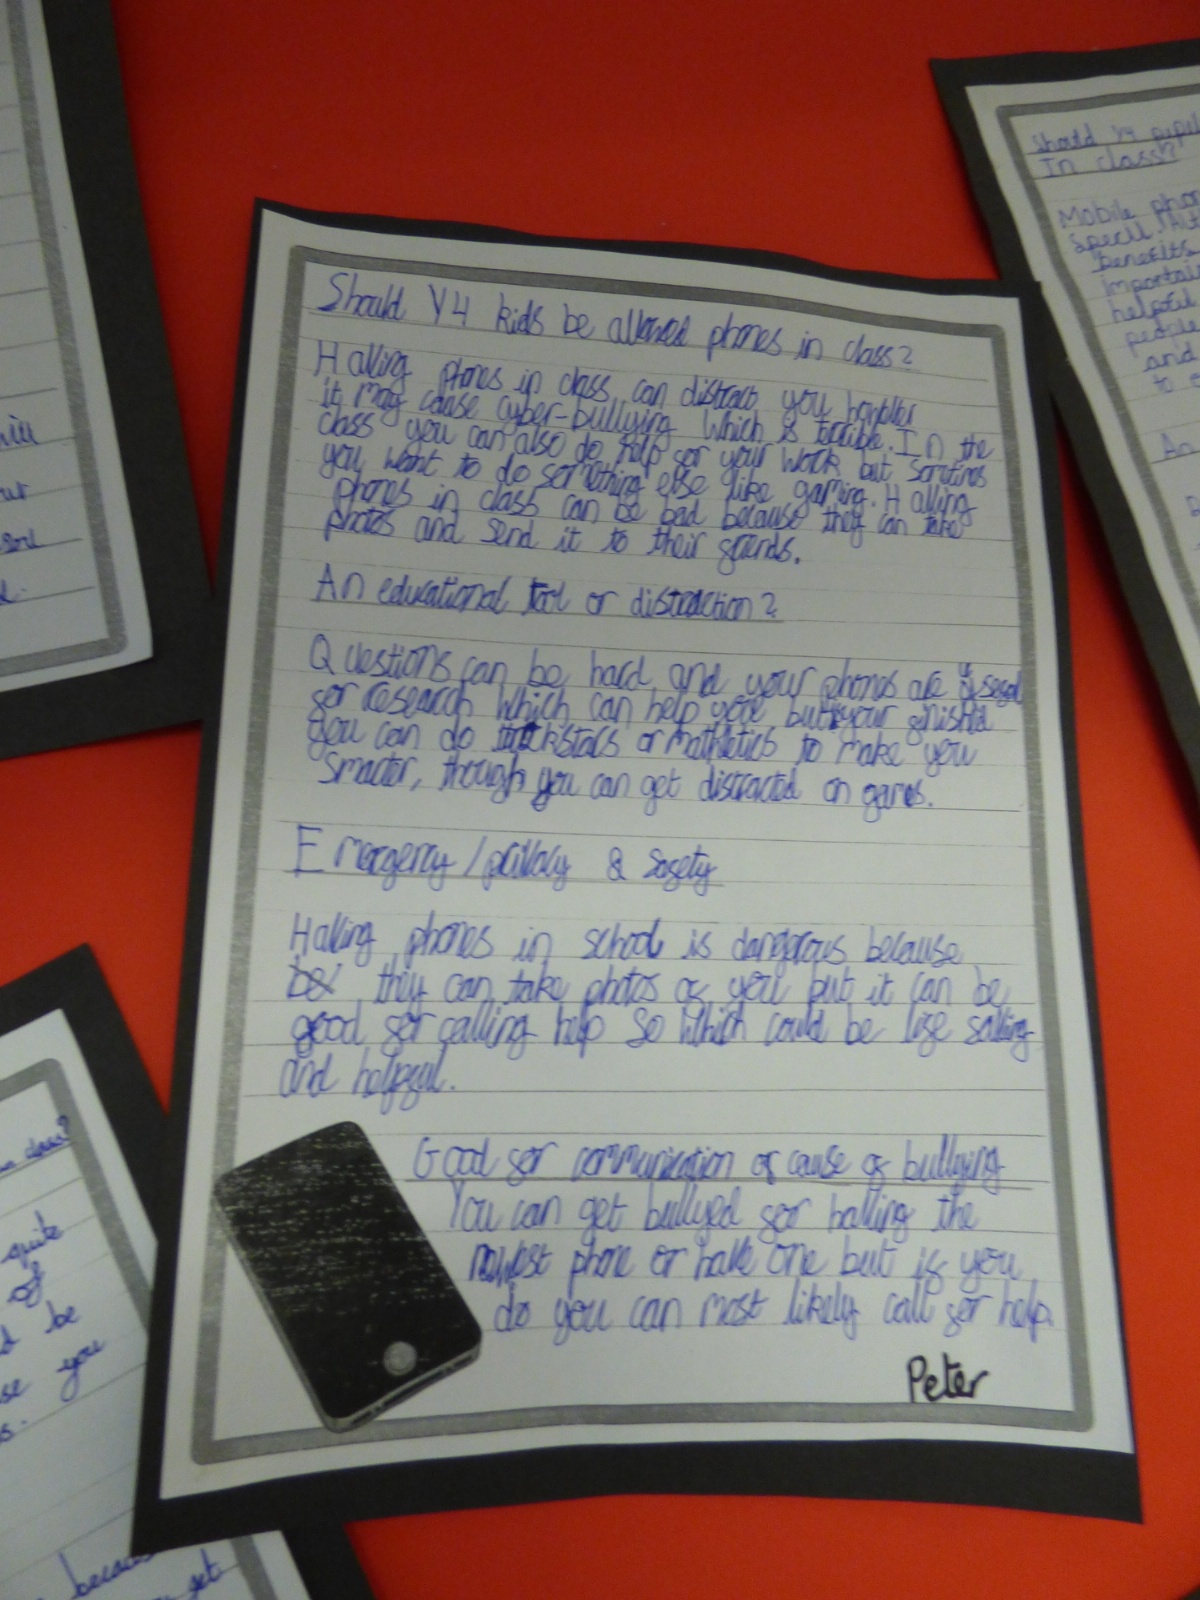 Should Y4 kids be allowed phones in class?
Having phones in class can distract you
it may cause cyber-bullying which is terrible. In the
class you can also do help for your work but somtimes
you want to do something else like gaming. Having
phones in class can be bad because they can take
photos and send it to their friends.
An educational tool or distraction?
Questions can be hard and your phones are
for research which can help you but your finished
you can do or mathletics to make you
Smarter, though you can get distracted on games.
Emergency / privacy & safety
Having phones in school is dangerous because
they can take photos of you but it can be
good for calling help so which could be life saving
and helpful.
Good for communication or cause of bullying
You can get bullyed for having the
newest phone or have one but if you
do you can most likely call for help.
Peter
Should Y4
In class?
Mobile
benefits
helpful
people
and
to
An
quite
of
be
you
get